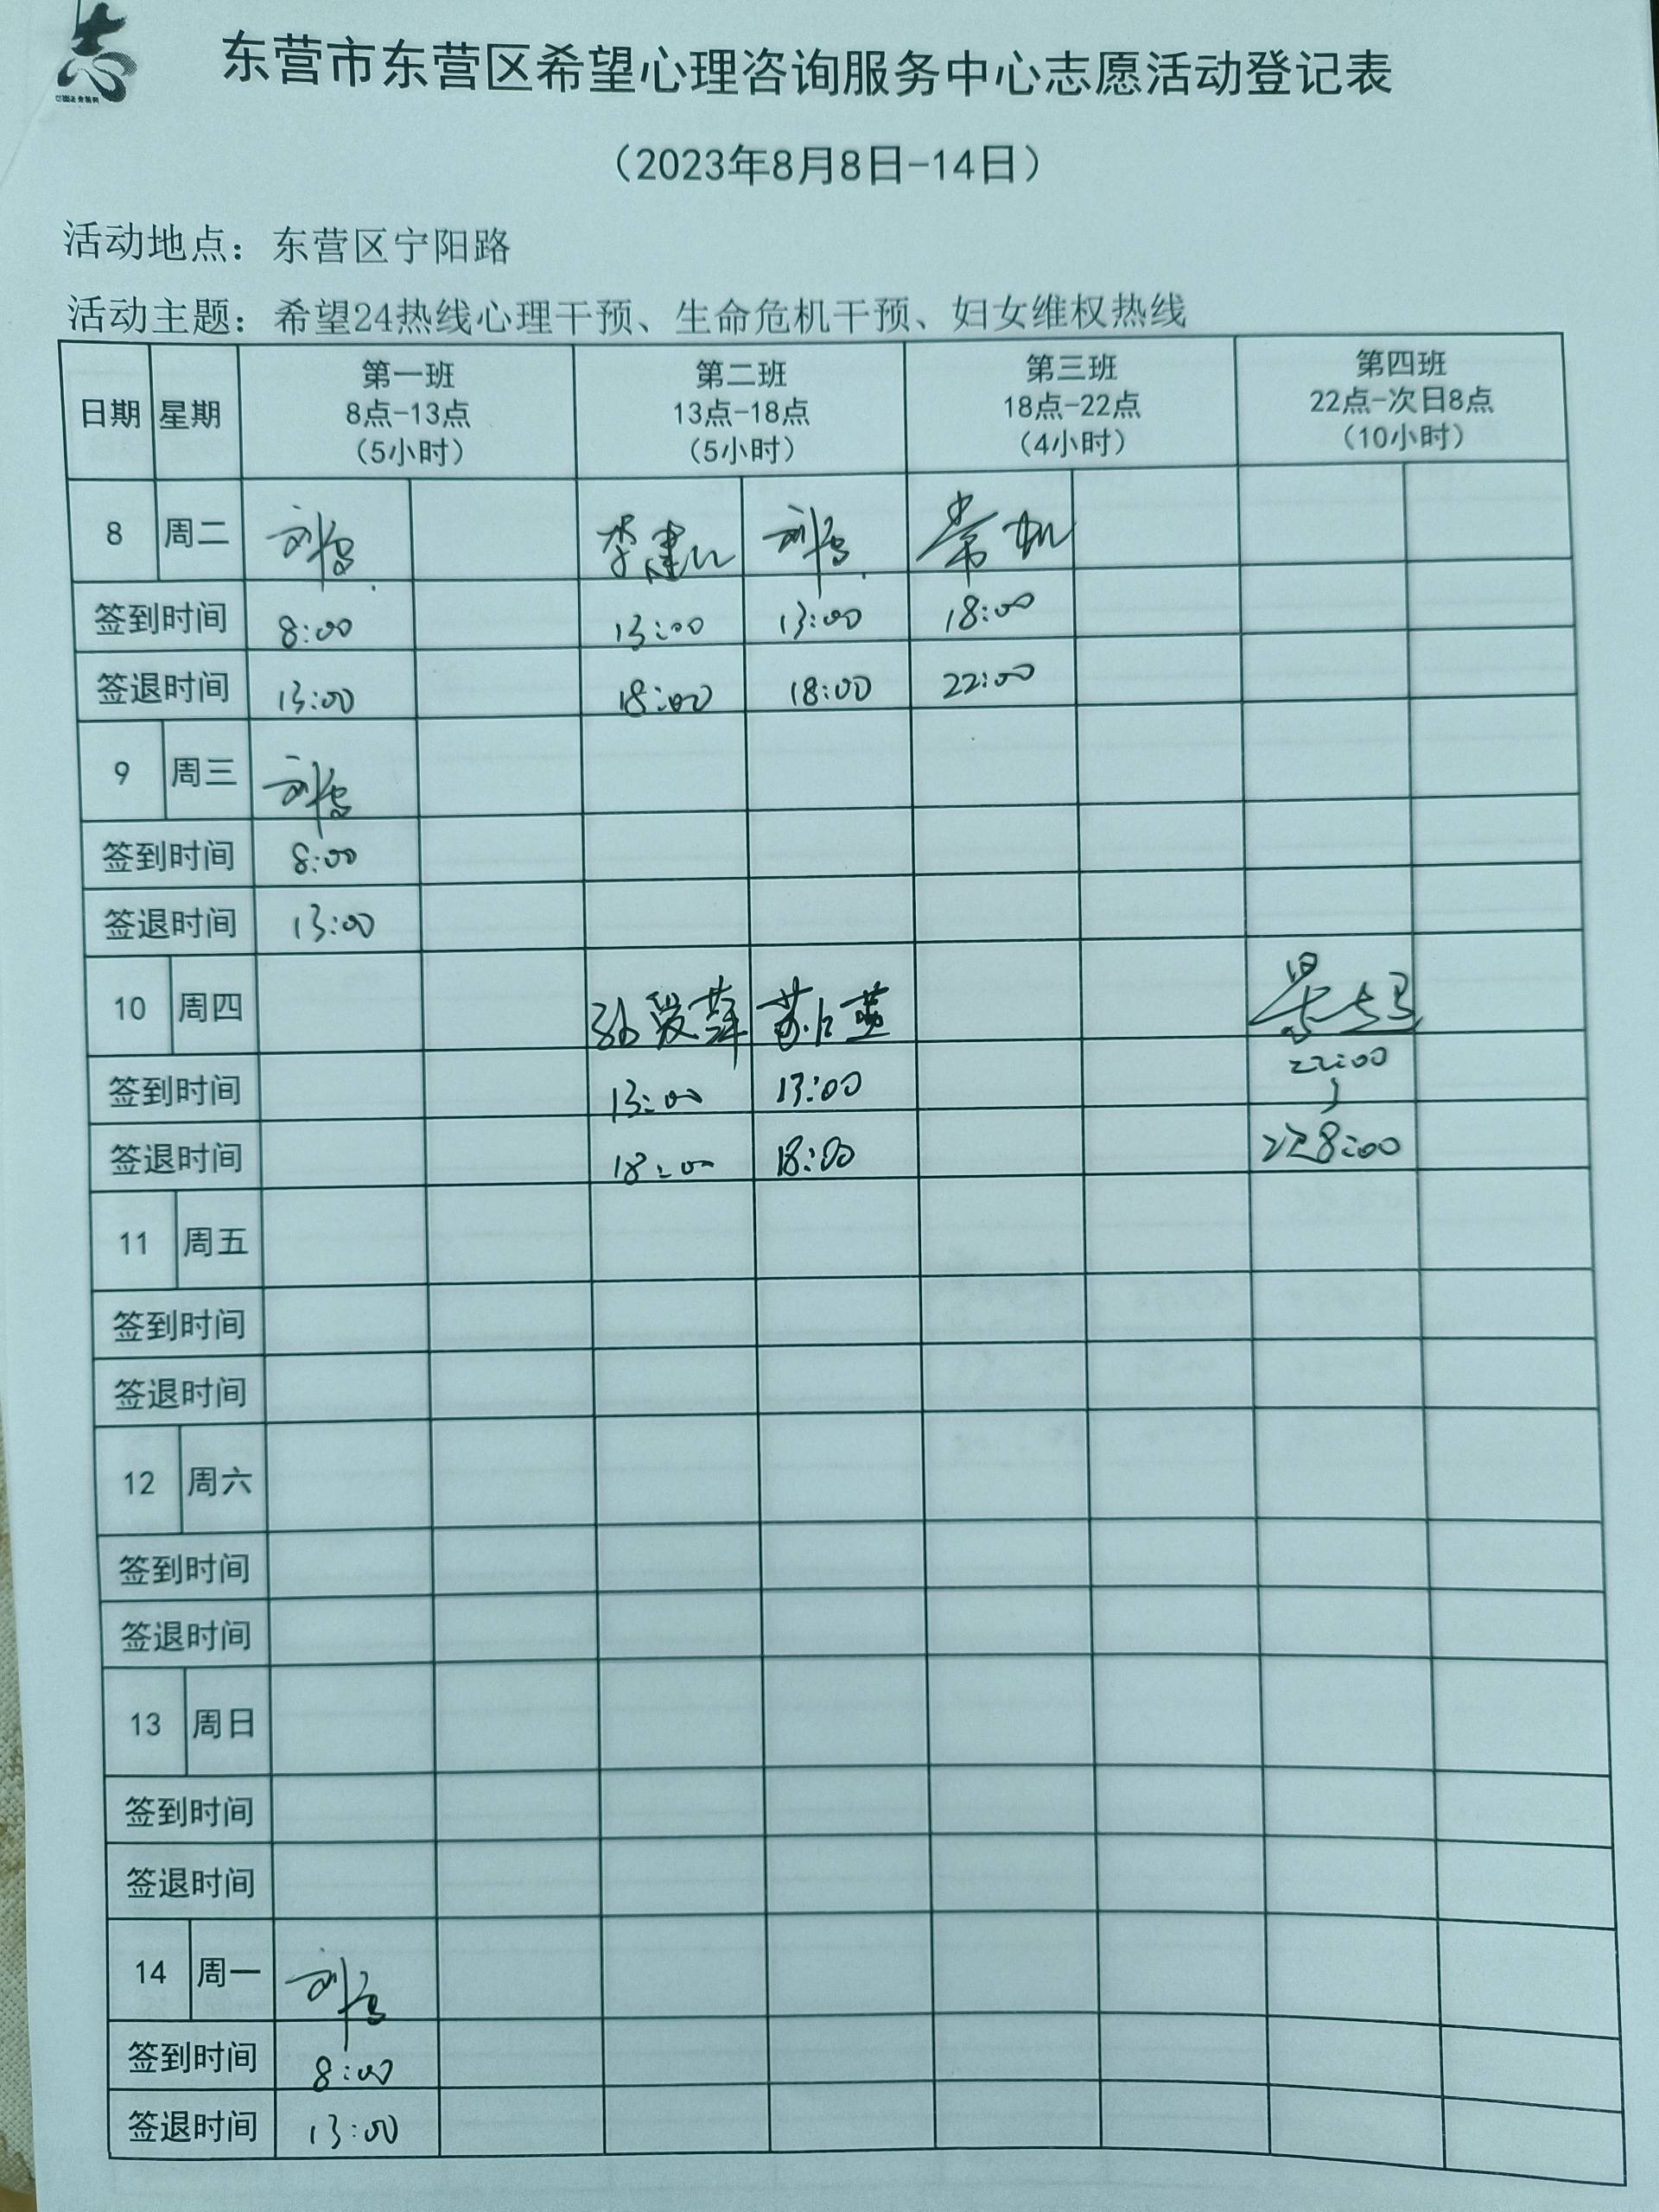 志
东营市东营区希望心理咨询服务中心志愿活动登记表
（2023年8月8日-14日）
活动地点：东营区宁阳路
活动主题：希望24热线心理干预、生命危机干预、妇女维权热线
日期 星期 第一班 第二班 第三班 第四班
8点-13点 13点-18点 18点-22点 22点-次日8点
（5小时） （5小时） （4小时） （10小时）
8 周二 刘 李建 刘 常
签到时间 8:00 13:00 13:00 18:00
签退时间 13:00 18:00 18:00 22:00
9 周三 刘
签到时间 8:00
签退时间 13:00
10 周四 孙爱萍 苏
签到时间 13:00 13:00 22:00
签退时间 18:00 18:00 次8:00
11 周五
签到时间
签退时间
12 周六
签到时间
签退时间
13 周日
签到时间
签退时间
14 周一 刘
签到时间 8:00
签退时间 13:00